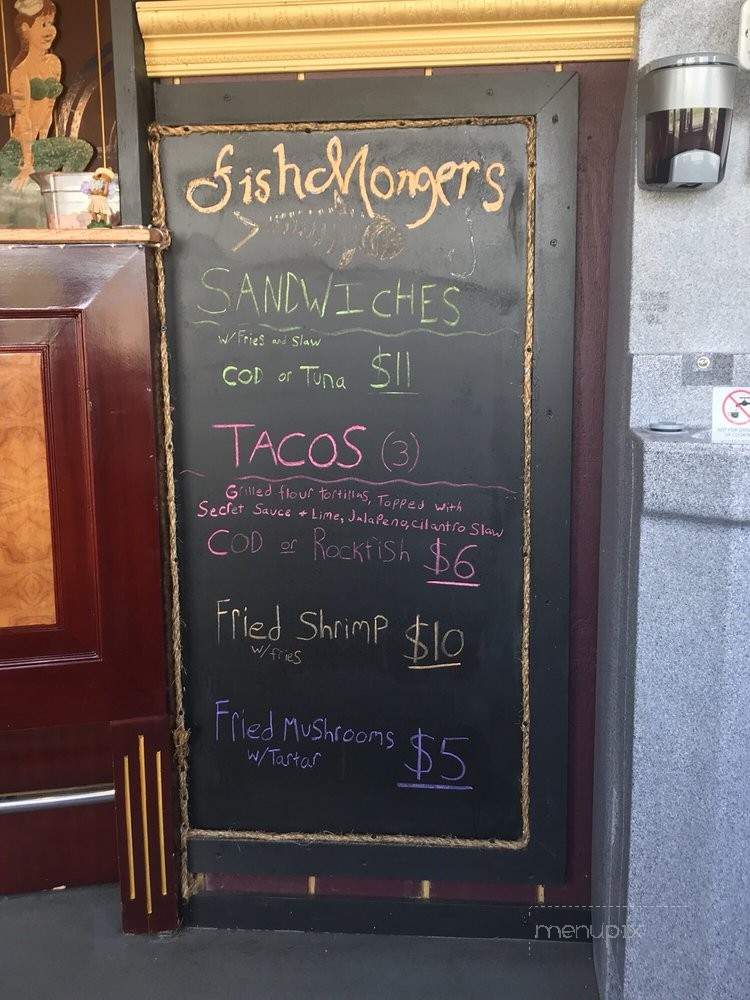 fishMongers
SANDWICHES
w/Fries and Slaw
COD or Tuna $11
TACOS (3)
Grilled flour tortillas, Topped with
Secret Sauce + Lime, Jalapeno, cilantro Slaw
COD or Rockfish $6
Fried Shrimp $10
w/fries
Fried Mushrooms $5
w/Tartar
menupix